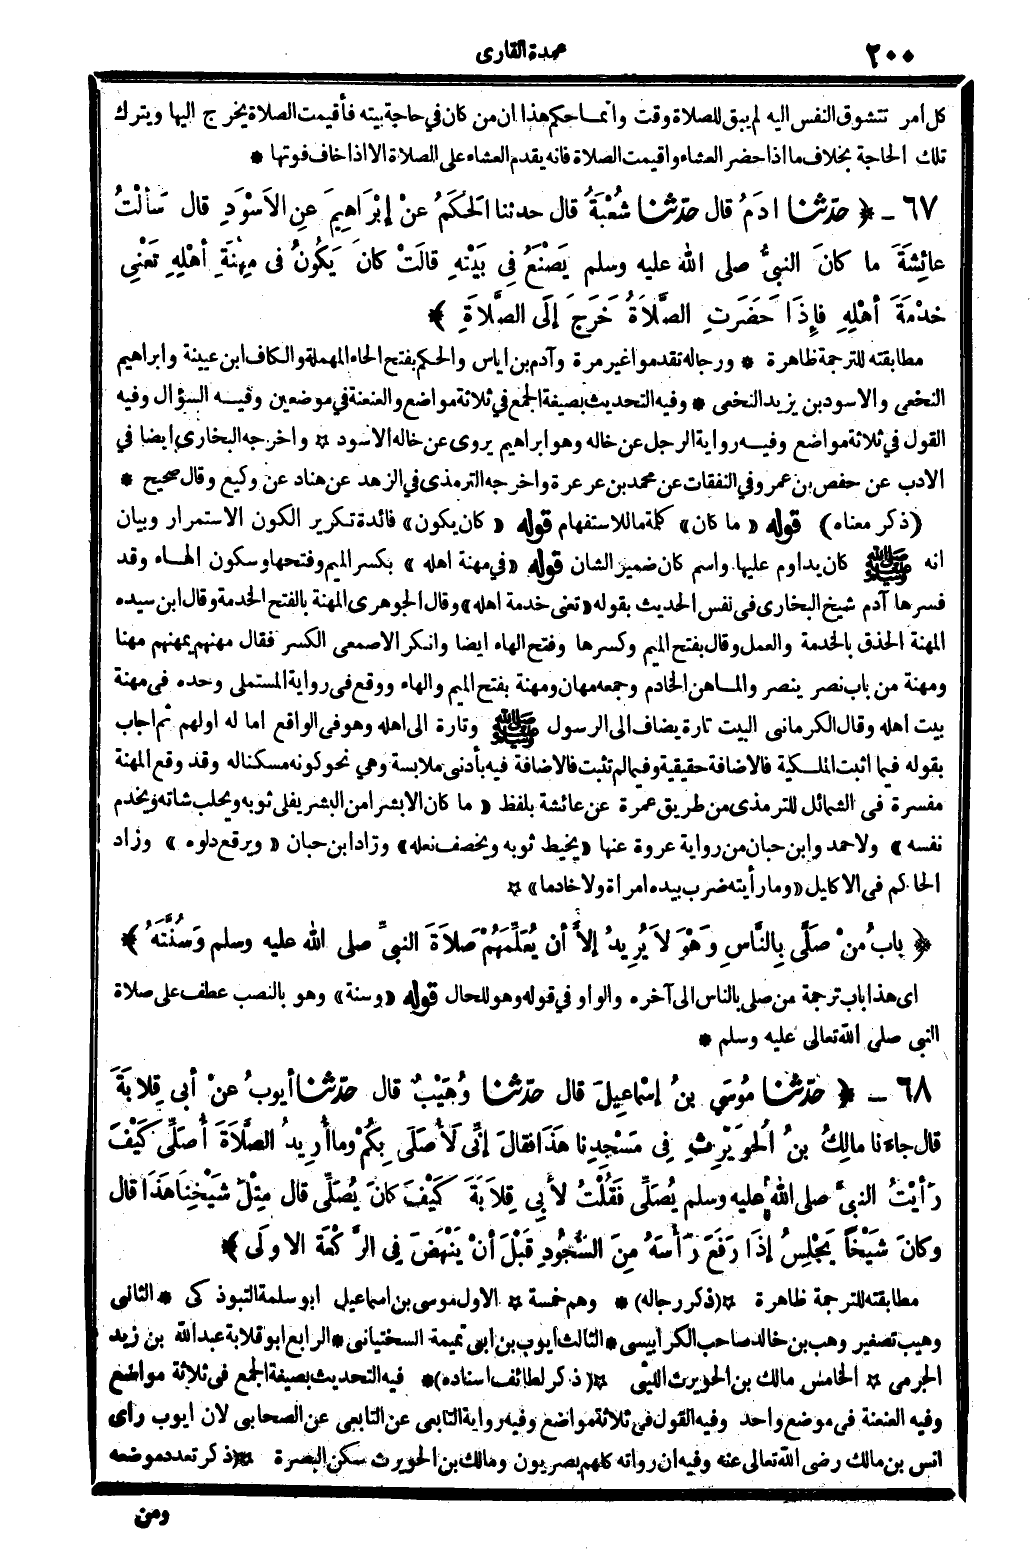 ٢٠٠
عمدة القارى
كل أمر تتشوق النفس اليه لم يبق للصلاة وقت وانما حكم هذا ان من كان في حاجة بيته فأقيمت الصلاة يخرج اليها ويترك
تلك الحاجة بخلاف ما اذا حضر العشاء واقيمت الصلاة فانه يقدم العشاء على الصلاة الا اذا خاف فوتها *
٦٧ - ﴿ حَدَّثَنَا ادَمُ قال حَدَّثَنَا شُعْبَةُ قال حدثنا الحَكَمُ عَنْ إِبْرَاهِيمَ عَنِ الأَسْوَدِ قال سَأَلْتُ
عائِشَةَ ما كانَ النبيُّ صلى الله عليه وسلم يَصْنَعُ فِي بَيْتِهِ قالَتْ كانَ يَكُونُ فى مِهْنَةِ أهْلِهِ تَعْنِي
خدْمَةَ أهْلِهِ فإِذَا حَضَرَتِ الصَّلاَةُ خَرَجَ إلَى الصَّلاَةِ ﴾
مطابقته للترجمة ظاهرة * ورجاله تقدموا غير مرة وآدم بن اياس والحكم بفتح الحاء المهملة والكاف ابن عيينة وابراهيم
النخعى والاسود بن يزيد النخعى * وفيه التحديث بصيغة الجمع في ثلاثة مواضع والعنعنة في موضعين وفيه السؤال وفيه
القول في ثلاثة مواضع وفيه رواية الرجل عن خاله وهو ابراهيم يروى عن خاله الاسود ☆ واخرجه البخارى ايضا في
الادب عن حفص بن عمر وفي النفقات عن محمد بن عرعرة واخرجه الترمذى في الزهد عن هناد عن وكيع وقال صحيح *
(ذكر معناه) قوله «ما كان» كلمة ما للاستفهام قوله «كان يكون» فائدة تكرير الكون الاستمرار وبيان
انه ﷺ كان يداوم عليها واسم كان ضمير الشان قوله «في مهنة اهله» بكسر الميم وفتحها وسكون الهاء وقد
فسرها آدم شيخ البخارى فى نفس الحديث بقوله «تعنى خدمة اهله» وقال الجوهرى المهنة بالفتح الخدمة وقال ابن سيده
المهنة الحذق بالخدمة والعمل وقال بفتح الميم وكسرها وفتح الهاء ايضا وانكر الاصمعى الكسر فقال مهنهم يمهنهم مهنا
ومهنة من باب نصر ينصر والماهن الخادم وجمعه مهان ومهنة بفتح الميم والهاء ووقع فى رواية المستملى وحده فى مهنة
بيت اهله وقال الكرمانى البيت تارة يضاف الى الرسول ﷺ وتارة الى اهله وهو فى الواقع اما له او لهم ثم اجاب
بقوله فيما اثبت الملكية فالاضافة حقيقية وفيما لم تثبت فالاضافة فيه بأدنى ملابسة وهي نحو كونه مسكنا له وقد وقع المهنة
مفسرة فى الشمائل للترمذى من طريق عمرة عن عائشة بلفظ «ما كان الا بشرا من البشر يفلى ثوبه ويحلب شاته ويخدم
نفسه» ولاحمد وابن حبان من رواية عروة عنها «يخيط ثوبه ويخصف نعله» وزاد ابن حبان «ويرقع دلوه» وزاد
الحاكم فى الاكليل «وما رأيته ضرب بيده امرأة ولا خادما» ☆
﴿ بابُ مَنْ صَلَّى بِالنَّاسِ وَهْوَ لاَ يُرِيدُ إلاَّ أن يُعَلِّمَهُمْ صَلاَةَ النبيِّ صلى الله عليه وسلم وَسُنَّتَهُ ﴾
اى هذا باب ترجمة من صلى بالناس الى آخره والواو في قوله وهو للحال قوله «وسنة» وهو بالنصب عطف على صلاة
النبى صلى الله تعالى عليه وسلم *
٦٨ - ﴿ حَدَّثَنَا مُوسَى بنُ إسْماعِيلَ قال حَدَّثَنَا وُهَيْبٌ قال حَدَّثَنَا أيوبُ عَنْ أبي قِلابَةَ
قال جاءَنا مالِكُ بنُ الحوَيْرِثِ فِي مَسْجِدِنا هَذَا فقالَ إنِّى لَأُصَلِّى بِكُمْ وما أُرِيدُ الصَّلاَةَ أُصَلِّي كَيْفَ
رَأيْتُ النبيَّ صلى الله عليه وسلم يُصَلِّي فَقُلْتُ لأَبِي قِلابَةَ كَيْفَ كانَ يُصَلِّى قال مِثْلَ شَيْخِنَا هَذَا قال
وكانَ شَيْخاً يَجْلِسُ إذَا رَفَعَ رَأسَهُ مِنَ السُّجُودِ قَبْلَ أنْ يَنْهَضَ فِي الرَّكْعَةِ الاُولَى ﴾
مطابقته للترجمة ظاهرة ☆(ذكر رجاله)* وهم خمسة ☆ الاول موسى بن اسماعيل ابو سلمة التبوذكى * الثانى
وهيب تصغير وهب بن خالد صاحب الكرابيسى * الثالث ايوب بن ابى تميمة السختيانى * الرابع ابو قلابة عبد الله بن زيد
الجرمى ☆ الخامس مالك بن الحويرث الليثى ☆(ذكر لطائف اسناده)* فيه التحديث بصيغة الجمع فى ثلاثة مواضع
وفيه العنعنة فى موضع واحد وفيه القول فى ثلاثة مواضع وفيه رواية التابعى عن التابعى عن الصحابى لان ايوب رأى
انس بن مالك رضى الله تعالى عنه وفيه ان رواته كلهم بصريون ومالك بن الحويرث سكن البصرة ☆(ذكر تعدد موضعه
ومن